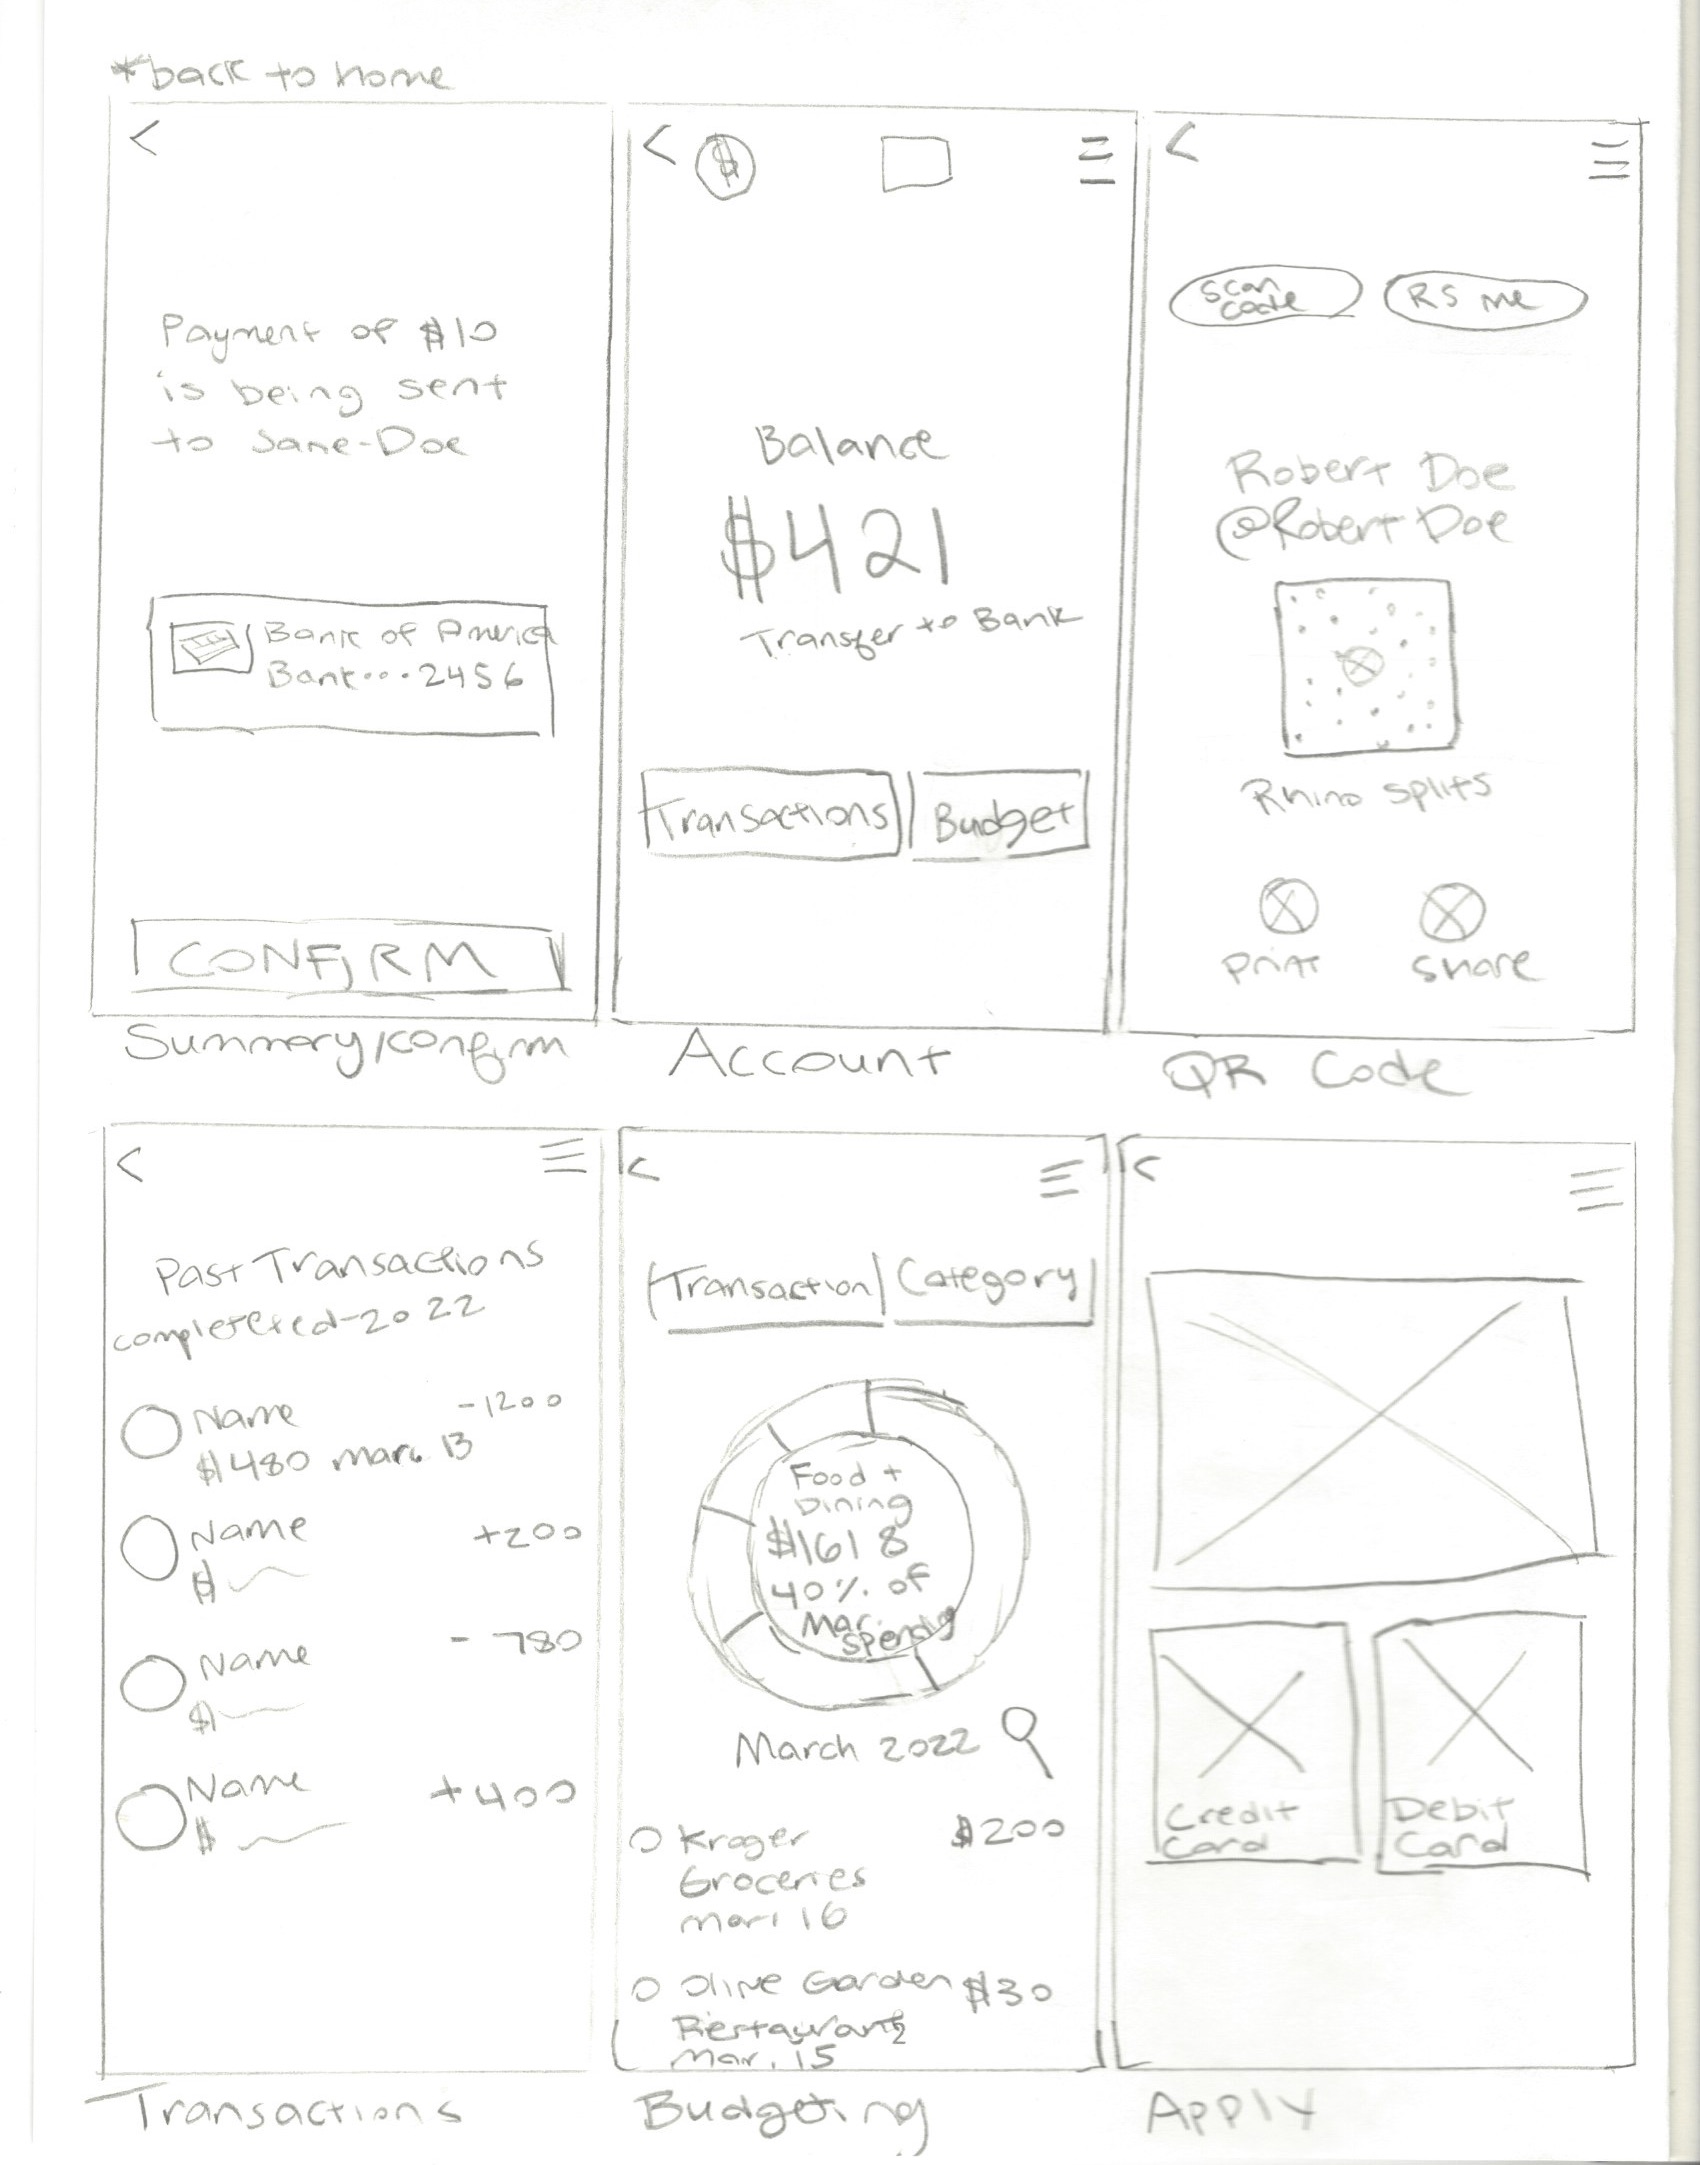 *back to home
<
Payment of $10
is being sent
to Jane-Doe
Bank of America
Bank...2456
CONFIRM
Summary/confirm
<
$
Balance
$421
Transfer to Bank
Transactions
Budget
Account
<
scan
code
RS me
Robert Doe
@Robert Doe
Rhino splits
print
share
QR Code
<
Past Transactions
-2022
Name -1200
$1480 mar. 13
Name +200
$
Name - 780
$
Name +400
$
Transactions
<
Transaction
Category
Food +
Dining
$1618
40% of
Mar.
spending
March 2022
Kroger $200
Groceries
mar. 16
Olive Garden $30
Mar. 15
Budgeting
<
Credit
Card
Debit
Card
Apply